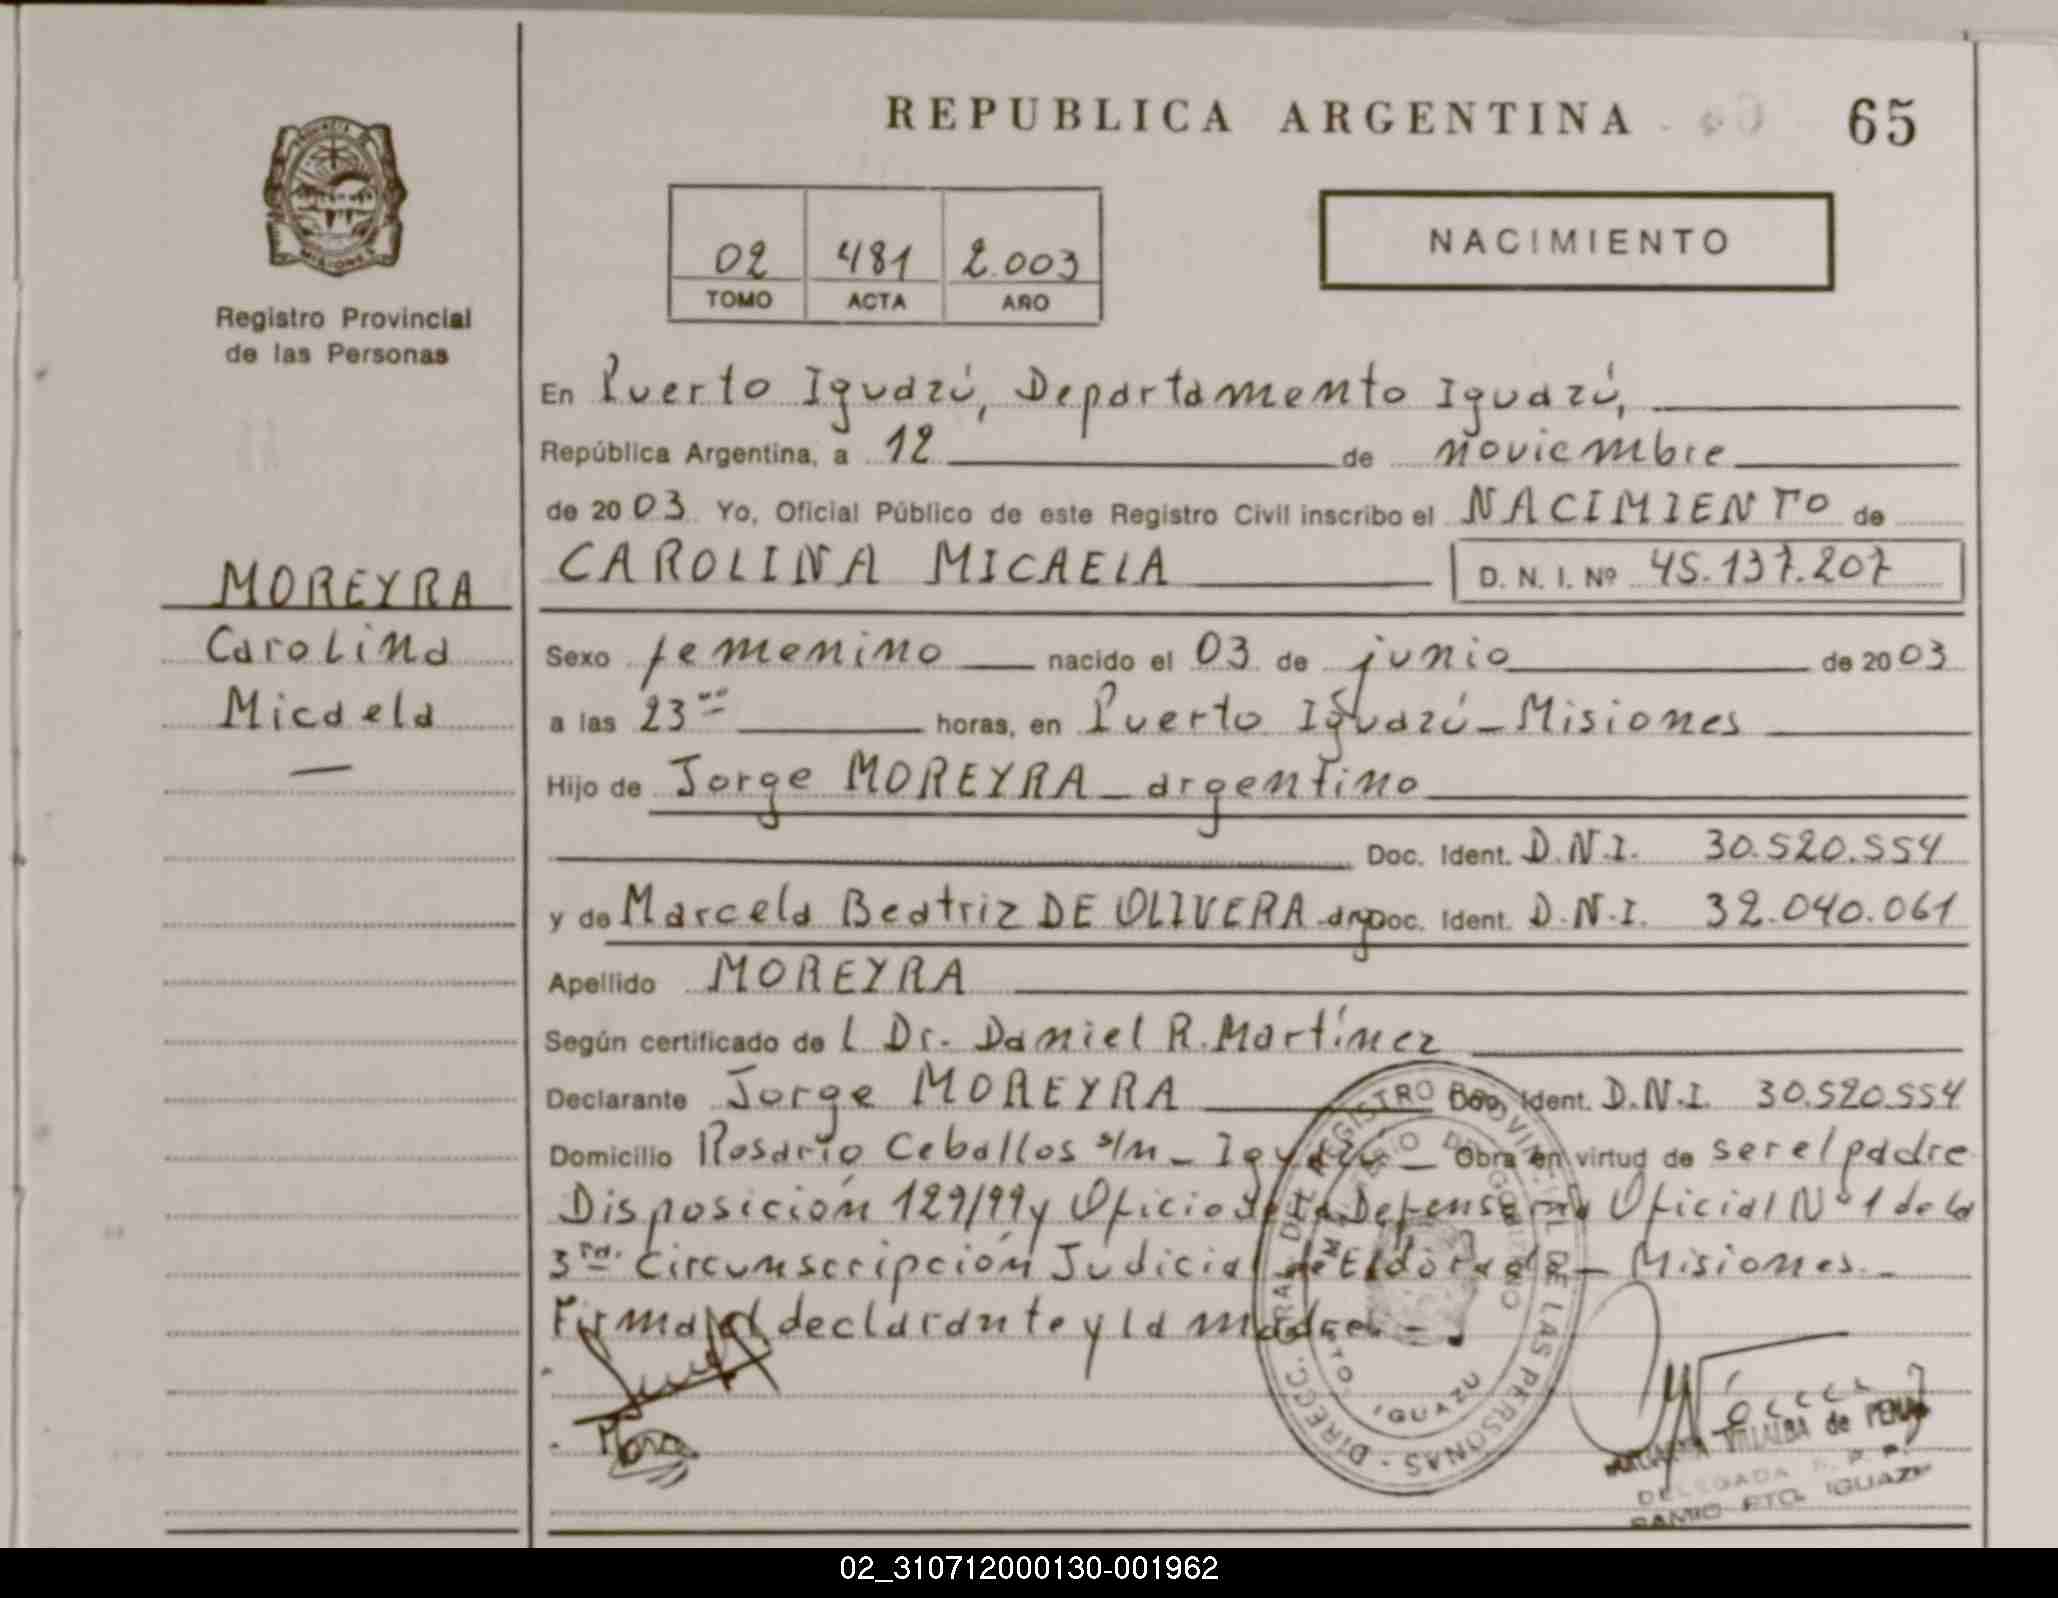 REPUBLICA ARGENTINA
65
PROVINCIA DE
MISIONES
Registro Provincial
de las Personas
02 481 2.003
TOMO ACTA AÑO
NACIMIENTO
En Puerto Iguazú, Departamento Iguazú,
República Argentina, a 12 de noviembre
de 2003 Yo, Oficial Público de este Registro Civil inscribo el NACIMIENTO de
CAROLINA MICAELA D. N. I. Nº 45.137.207
MOREYRA
Carolina
Micaela
Sexo femenino nacido el 03 de junio de 2003
a las 23 horas, en Puerto Iguazú - Misiones
Hijo de Jorge MOREYRA - argentino
Doc. Ident. D.N.I. 30.520.554
y de Marcela Beatriz DE OLIVERA - arg Doc. Ident. D.N.I. 32.040.061
Apellido MOREYRA
Según certificado de l Dr. Daniel R. Martínez
Declarante Jorge MOREYRA Doc. Ident. D.N.I. 30.520.554
Domicilio Rosario Ceballos s/n - Iguazú - Obra en virtud de ser el padre
Disposición 129/99 y Oficio de la Defensoría Oficial Nº 1 de la
3ra. Circunscripción Judicial de Eldorado - Misiones. -
Firma el declarante y la madre. -
DIRECC. GRAL. DEL REGISTRO PROVINCIAL DE LAS PERSONAS -
PTO. IGUAZU
VILLALBA de PEÑA
DELEGADA R. P. P.
PTO. IGUAZU
02_310712000130-001962